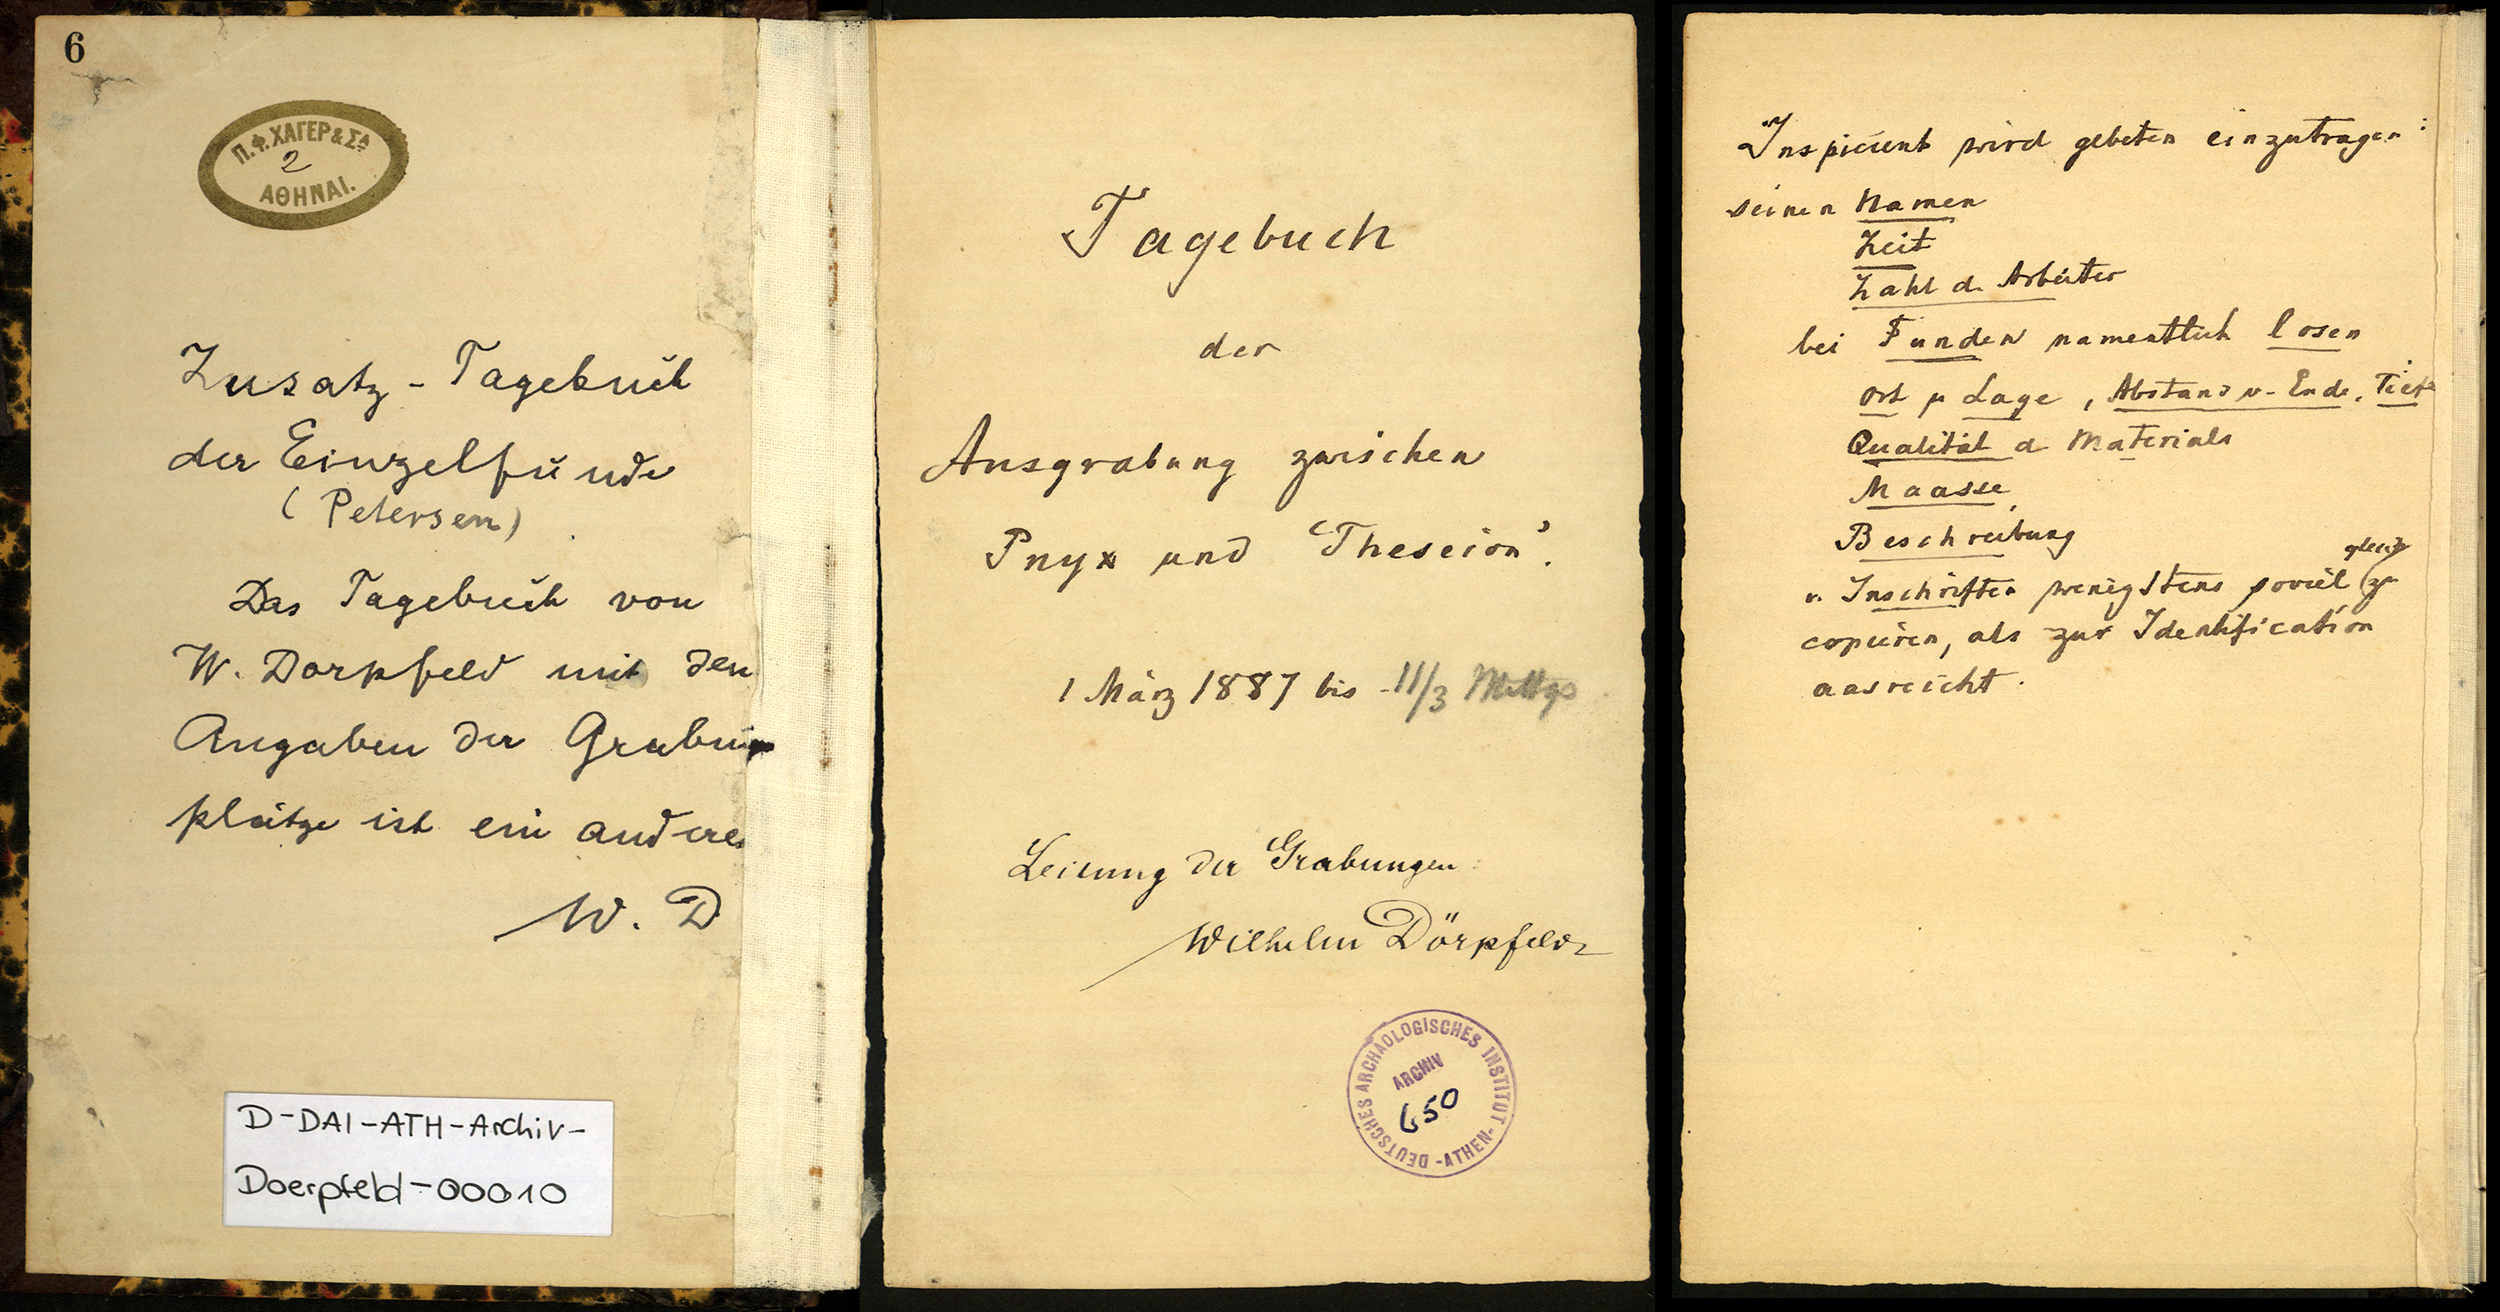 6
Π.Φ. ΧΑΓΕΡ & Σα
2
ΑΘΗΝΑΙ.
Zusatz-Tagebuch
der Einzelfunde
(Petersen)
Das Tagebuch von
W. Dörpfeld mit den
Angaben der Grabungs
plätze ist ein anderes
W. D
D-DAI-ATH-Archiv-
Doerpfeld-00010
Tagebuch
der
Ausgrabung zwischen
Pnyx und 'Theseion'.
1 März 1887 bis 11/3 Mittgs
Leitung der Grabungen:
Wilhelm Dörpfeld
DEUTSCHES ARCHÄOLOGISCHES INSTITUT -ATHEN-
ARCHIV
650
Inspicient wird gebeten einzutragen:
seinen Namen
Zeit
Zahl d. Arbeiter
bei Funden namentlich losen
Ort u Lage, Abstand v. Ende, Tiefe
Qualität d Materials
Maasse
Beschreibung
gleich
v. Inschriften wenigstens soviel zu
copieren, als zur Identification
ausreicht.